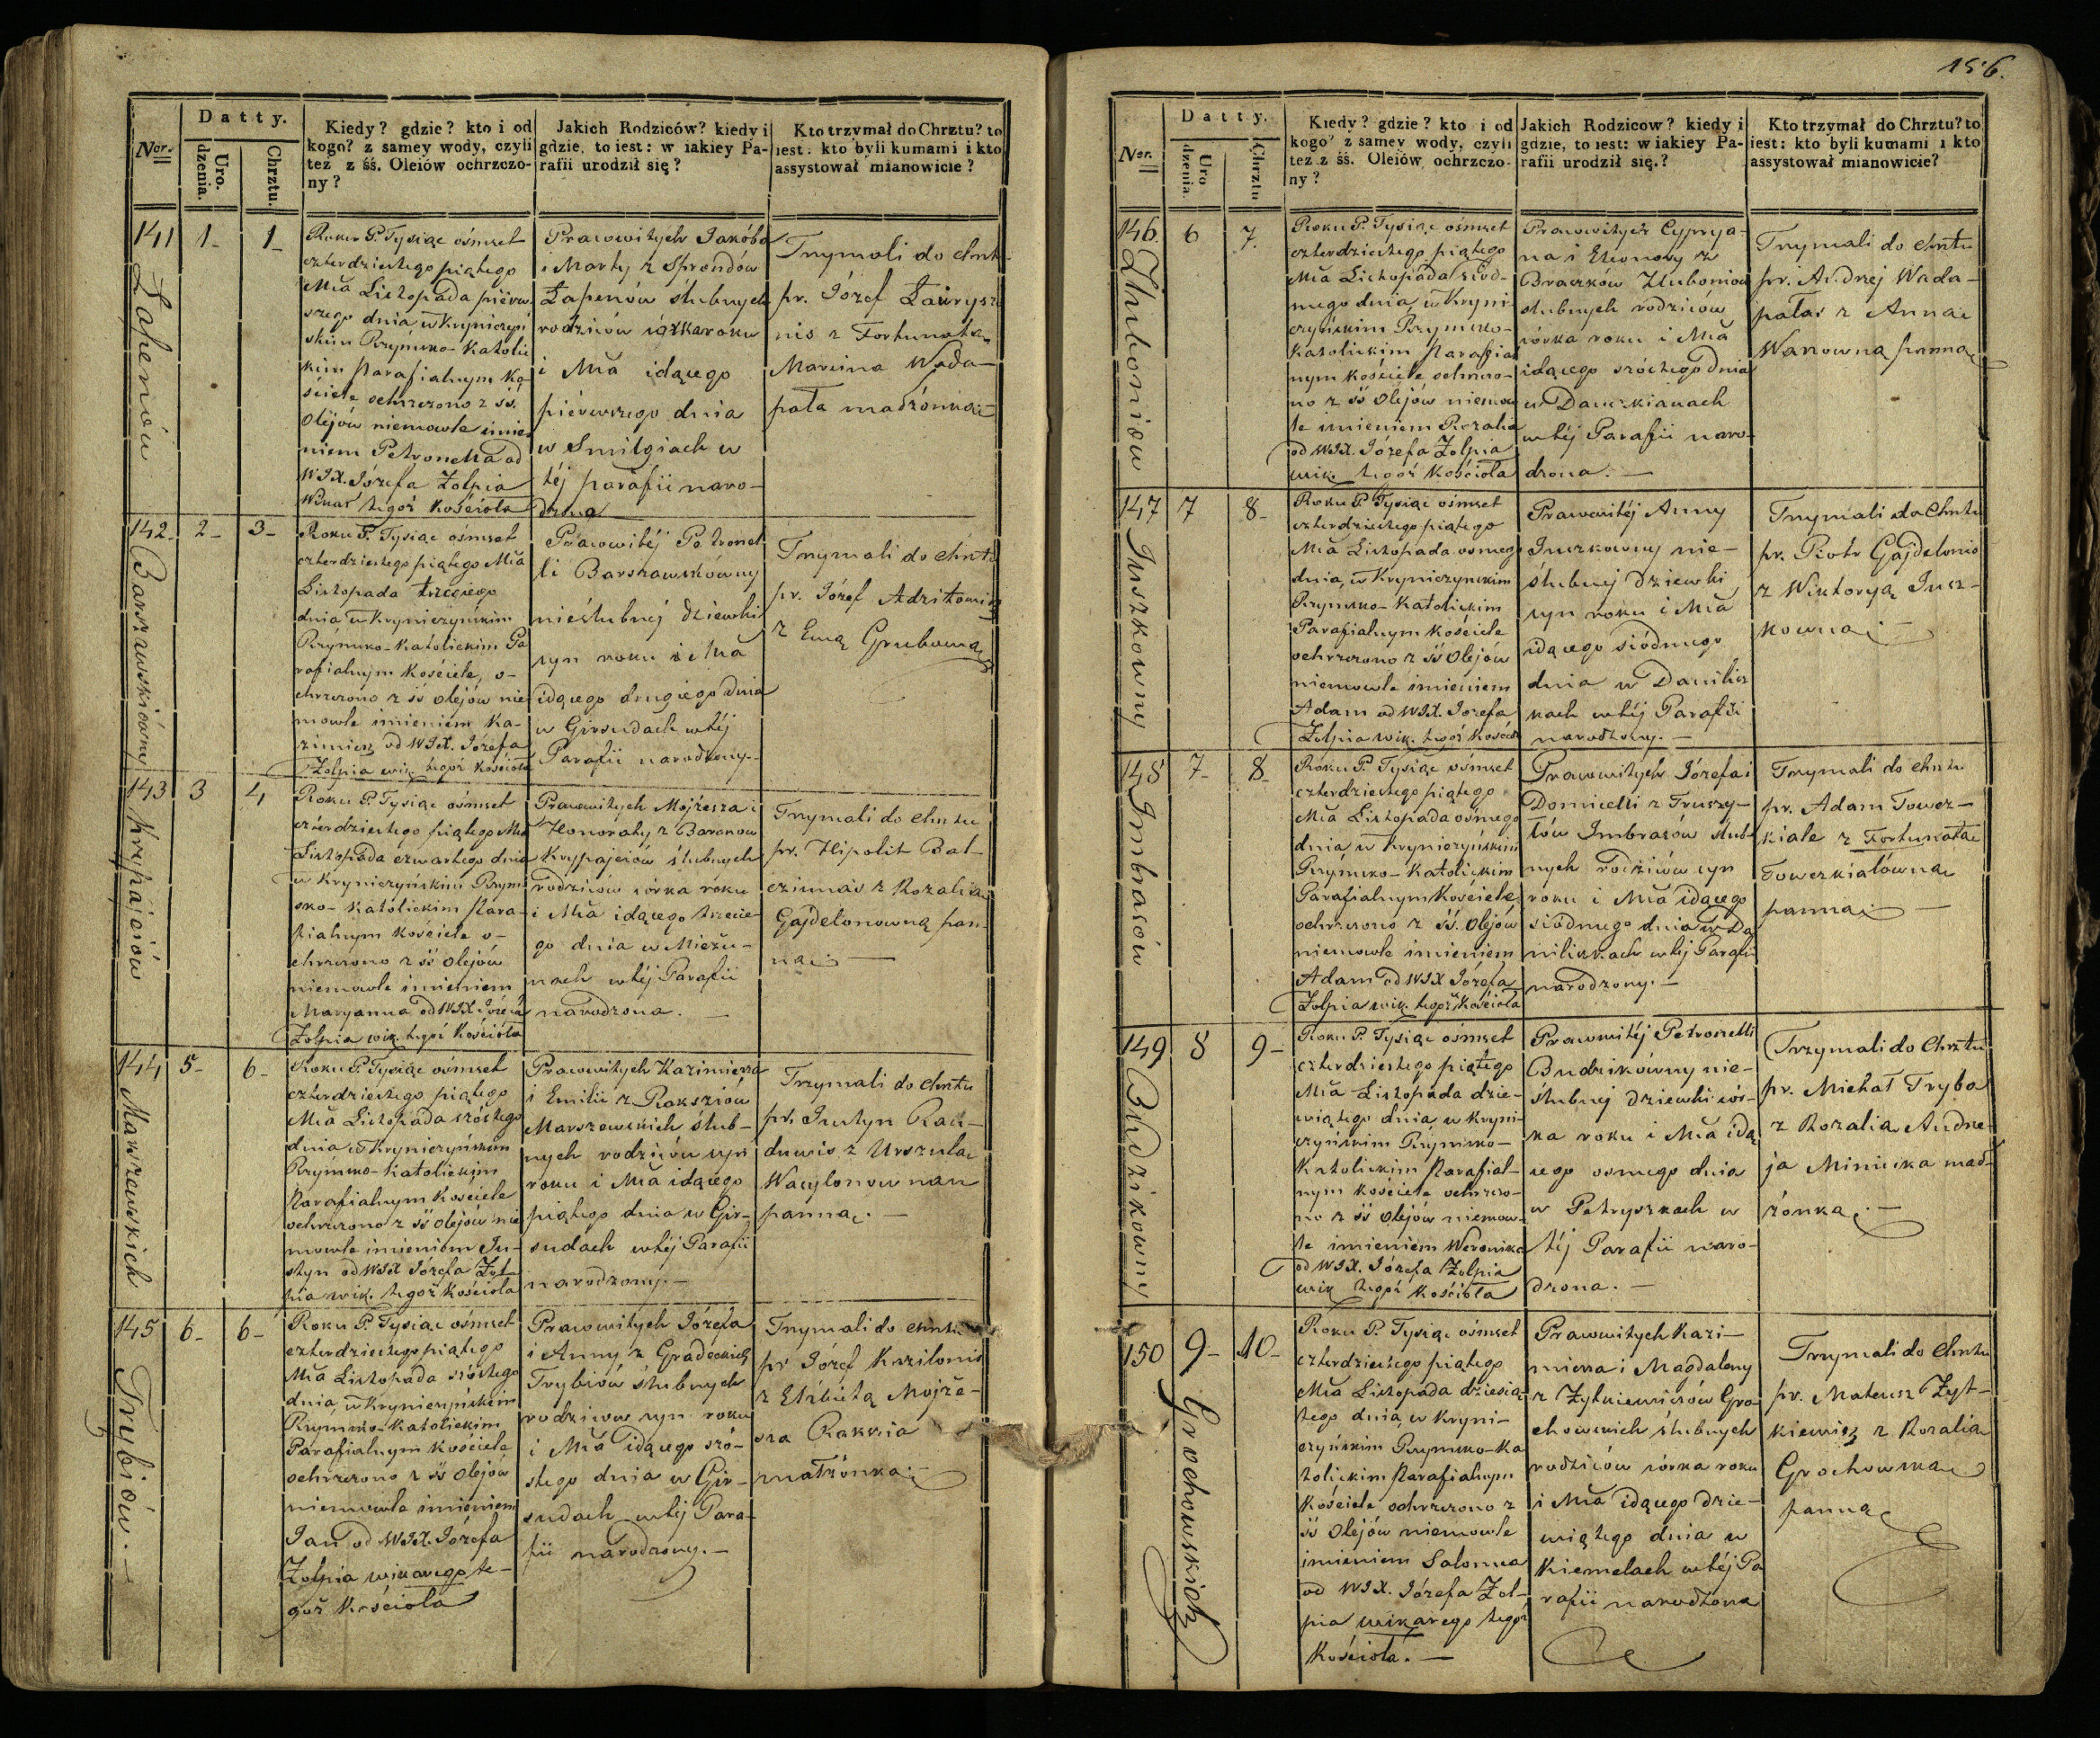 Nor.
Datty.
Uro.
dzenia.
Chrztu.
Kiedy? gdzie? kto i od
kogo? z samey wody, czyli
tez z śś. Oleiów ochrzczo-
ny?
Jakich Rodziców? kiedy i
gdzie, to iest: w iakiey Pa-
rafii urodził się?
Kto trzymał do Chrztu? to
iest: kto byli kumami i kto
assystował mianowicie?
141
1-
1-
Łapenów
Roku P. Tysiąc ośmset
czterdziestego piątego
Mca Listopada pierw-
szego dnia w Kryniczyń
skim Rzymsko-Katolic
kim Parafialnym Ko-
ściele ochrzczono z śś.
Olejów niemowle imie
niem Petronella od
WJX. Józefa Żołpia
Wikar tegoż Kościoła
Prawowitych Jakóba
i Marty z Sprondów
Łapenów ślubnych
rodziców córka roku
i Mca idącego
piérwszego dnia
w Smilgiach w
téj parafii naro-
dzona
Trzymali do chrztu
pr. Józef Ławrysz
nis z Fortunatą
Marcina Wada-
pała małżonką
142-
2-
3-
Barszawskiówny
Roku P. Tysiąc ośmset
czterdziestego piątego Mca
Listopada trzeciego
dnia w Kryniczyńskim
Rzymsko-Katolickim Pa
rafialnym Kościele, o-
chrzczono z śś olejów nie
mowle imieniem Ka-
zimierz od WJX. Józefa
Żołpia wik. tegoż Kościoła
Prawowitéj Petronel
li Barszawskówny
nieślubnéj dziewki
syn roku i Mca
idącego drugiego dnia
w Girsudach w téj
Parafii narodzony.-
Trzymali do chrztu
pr. Józef
z Ewą Grubową
143
3
4
Krepajciów
Roku P. Tysiąc ośmset
czterdziestego piątego Mca
Listopada czwartego dnia
w Kryniczyńskim Rzym
sko-Katolickim Para-
fialnym Kościele o-
chrzczono z śś olejów
niemowle imieniem
Maryanna od WJX Józefa
Żołpia wik. tegoż Kościoła
Prawowitych Mojżesza i
Honoraty z Baronow
Krypajciów ślubnych
rodziców córka roku
i Mca idącego trzecie
go dnia w Miežu-
nach w téj Parafii
narodzona. -
Trzymali do chrztu
pr. Hipolit Bal-
cziunas z Rozalią
Gajdelonowną pan-
ną. -
144
5-
6-
Marszewskich
Roku P. Tysiąc ośmset
czterdziestego piątego
Mca Listopada szóstego
dnia w Kryniczyńskim
Rzymsko-Katolickim
Parafialnym Kościele
ochrzczono z śś olejów nie
mowle imieniem Ju-
styn od WJX Józefa Żoł-
pia wik. tegoż Kościoła
Prawowitych Kazimierza
i Emilii z Raksziów
Marszewskich ślub-
nych rodziców syn
roku i Mca idącego
piątego dnia w Gir-
sudach w téj Parafii
narodzony. -
Trzymali do chrztu
pr. Justyn Rau-
duwis z Urszulą
Wacylonow nan
panną. -
145
6-
6-
Trybiów. -
Roku P. Tysiąc ośmset
czterdziestego piątego
Mca Listopada szóstego
dnia, w Krynieryńskim
Rzymsko-Katolickim
Parafialnym Kościele
ochrzczono z śś olejów
niemowle imieniem
Jan od WJX. Józefa
Żołpia wikarego te-
goż Kościoła
Prawowitych Józefa
i Anny z Gradeckich
Trybiów ślubnych
rodziców syn roku
i Mca idącego szó-
stego dnia w Gir-
sudach w téj Para-
fii narodzony. -
Trzymali do chrztu
pr Józef Kazilonis
z Elżbietą Mojże-
sza Rakszia
małżonką. -
156.
Nor.
Datty.
Uro
dzenia.
Chrztu
Kiedy? gdzie? kto i od
kogo? z samey wody, czyli
tez z śś. Oleiów, ochrzczo-
ny?
Jakich Rodzicow? kiedy i
gdzie, to iest: w iakiey Pa-
rafii urodził się.?
Kto trzymał do Chrztu? to
iest: kto byli kumami i kto
assystował mianowicie?
146.
6
7.
Żłuboniow
Roku P. Tysiąc ośmset
czterdziestego piątego
Mca Listopada siód-
mego dnia, w Kryni-
czyńskim Rzymsko-
katolickim Parafial
nym Kościele ochrzczo-
no z śś olejów niemow
le imieniem Rozalia
od WJX. Józefa Żołpia
wik. tegoż Kościoła
Prawowitych Cyprya-
na i Eleonory z
Braczków Złuboniow
ślubnych rodziców
córka roku i Mca
idącego szóstego dnia
w Dauczkianach
w téj Parafii naro-
dzona. -
Trzymali do chrztu
pr. Andrzej Wada-
pałas z Anną
Wanowną panną
147
7
8-
Juszkowny
Roku P. Tysiąc ośmset
czterdziestego piątego
Mca Listopada osmego
dnia, w Krynieryńskim
Rzymsko-Katolickim
Parafialnym Kościele
ochrzczono z śś Olejów
niemowle imieniem
Adam od WJX. Józefa
Żołpia wik. tegoż Kościoła
Prawowitéj Anny
Juszkowny nie-
ślubnej dziewki
syn roku i Mca
idącego siódmego
dnia w Danilisz
kach w téj Parafii
narodzony. -
Trzymali do Chrztu
pr. Piotr Gajdelonis
z Wiktoryą Jusz-
kowną. -
148
7-
8-
Imbrasów
Roku P. Tysiąc ośmset
czterdziestego piątego
Mca Listopada ośmego
dnia, w Krynieryńskim
Rzymsko-Katolickim
Parafialnym Kościele,
ochrzczono z śś. Olejów
niemowle imieniem
Adam od WJX Józefa
Żołpia wik. tegoż Kościoła
Prawowitych Józefa i
Domicelli z Truszy-
łów Imbrasów ślub
nych rodziców syn
roku i Mca idącego
siódmego dnia w Da
niliszkach w téj Parafii
narodzony. -
Trzymali do chrztu
pr. Adam Towcz-
kiale z Fortunatą
Towczkiałówną
panną. -
149
8
9-
Budzikówny
Roku P. Tysiąc ośmset
czterdziestego piątego
Mca Listopada dzie-
wiątego dnia, w Kryni-
czyńskim Rzymsko-
Katolickim Parafial-
nym Kościele ochrzczo-
no z śś Olejów niemow-
le imieniem Weronika
od WJX. Józefa Żołpia
wik tegoż Kościoła
Prawowitéj Petronelli
Budzikówny nie-
ślubnej dziewki cór-
ka roku i Mca idą
cego osmego dnia
w Petryszkach w
téj Parafii naro-
dzona. -
Trzymali do Chrztu
pr. Michał Tryba
z Rozalią Andrze-
ja Miniuka mał-
żonką. -
150
9-
10-
Grochowskich
Roku P. Tysiąc ośmset
czterdziestego piątego
Mca Listopada dziesią-
tego dnia, w Kryni-
czyńskim Rzymsko-Ka
tolickim Parafialnym
Kościele ochrzczono z
śś Olejów niemowle
imieniem Salomea
od WJX. Józefa Żoł-
pia wikarego tegoż
Kościoła. -
Prawowitych Kazi-
mierza i Magdaleny
z Żytkiewiczów Gro-
chowskich ślubnych
rodziców córka roku
i Mca idącego dzie-
wiątego dnia w
Kiemelach w téj Pa
rafii narodzona
Trzymali do Chrztu
pr. Mateusz Żyt-
kiewicz z Rozalią
Grochowską
panną